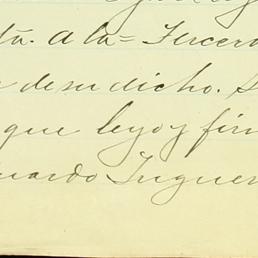 ta. A la = Tercera
de su dicho. S
que leyo y fir
uardo Inguer